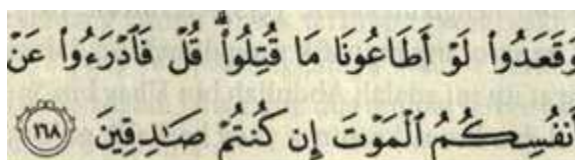 وَقَعَدُوا۟ لَوْ أَطَاعُونَا مَا قُتِلُوا۟ ۗ قُلْ فَٱدْرَءُوا۟ عَنْ
أَنفُسِكُمُ ٱلْمَوْتَ إِن كُنتُمْ صَـٰدِقِينَ ١٦٨